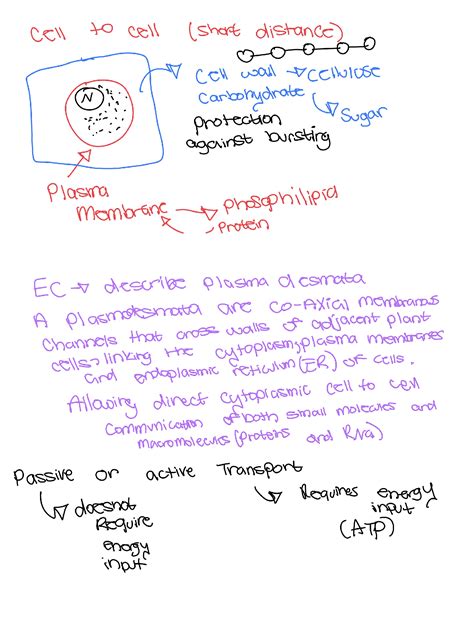 Cell to cell (short distance)
Cell wall → Cellulose
Carbohydrate
Sugar
Protection
against bursting
N
Plasma
Membrane → Phosophilipid
Protein
EC → describe plasma desmata
A plasmodesmata are co-Axial membranous
Channels that cross walls of adjacent plant
cells, linking the cytoplasm, plasma membranes
and endoplasmic reticulum (ER) of cells.
Allowing direct cytoplasmic cell to cell
communication of both small molecules and
macromolecules (Proteins and RNa)
Passive or active Transport
doesnot
Require
energy
input
Requires energy
input
(ATP)